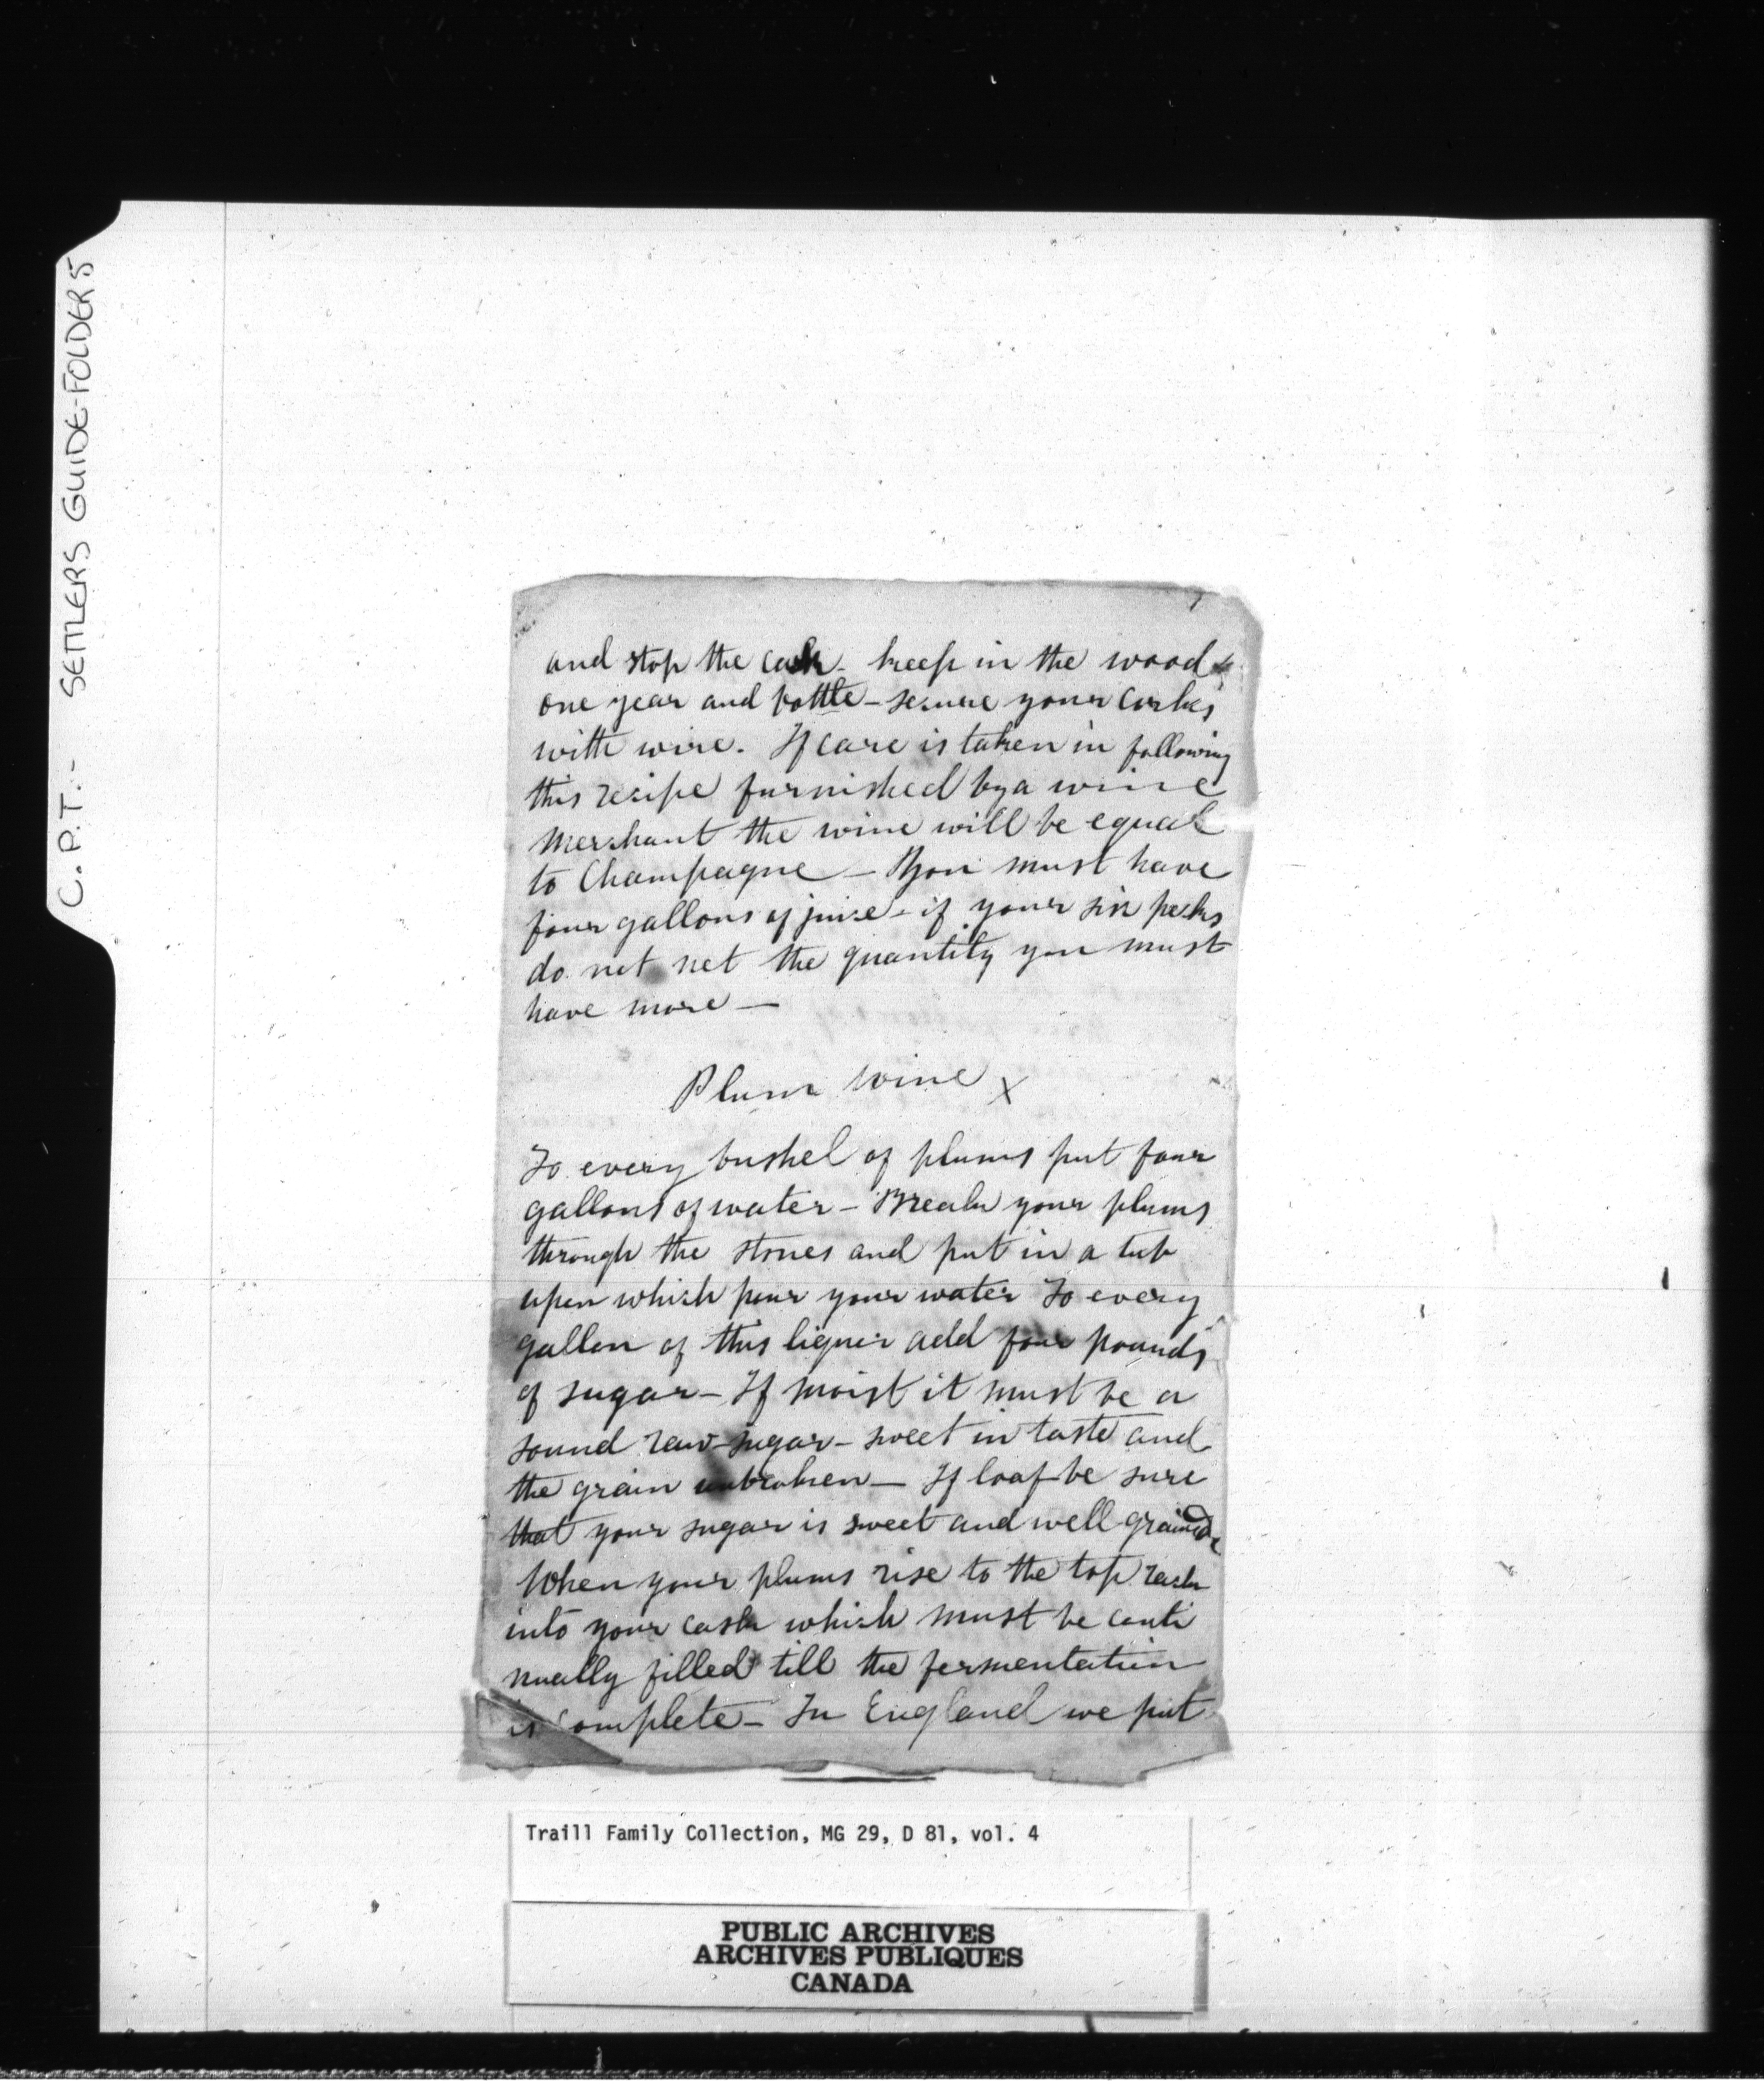 C.P.T.- SETTLERS GUIDE-FOLDER 5
and stop the cask - keep in the wood
one year and bottle - secure your corks
with wire. If care is taken in following
this recipe furnished by a wine
merchant the wine will be equal
to Champagne - You must have
four gallons of juice - if your six pecks
do not net the quantity you must
have more -
Plum wine x
To every bushel of plums put four
gallons of water - Break your plums
through the stones and put in a tub
upon which pour your water To every
gallon of this liquor add four pounds
of sugar - If moist it must be a
sound raw-sugar - sweet in taste and
the grain unbroken - If loaf be sure
that your sugar is sweet and well grained
When your plums rise to the top rack
into your cask which must be conti
nually filled till the fermentation
is complete - In England we put
Traill Family Collection, MG 29, D 81, vol. 4
PUBLIC ARCHIVES
ARCHIVES PUBLIQUES
CANADA